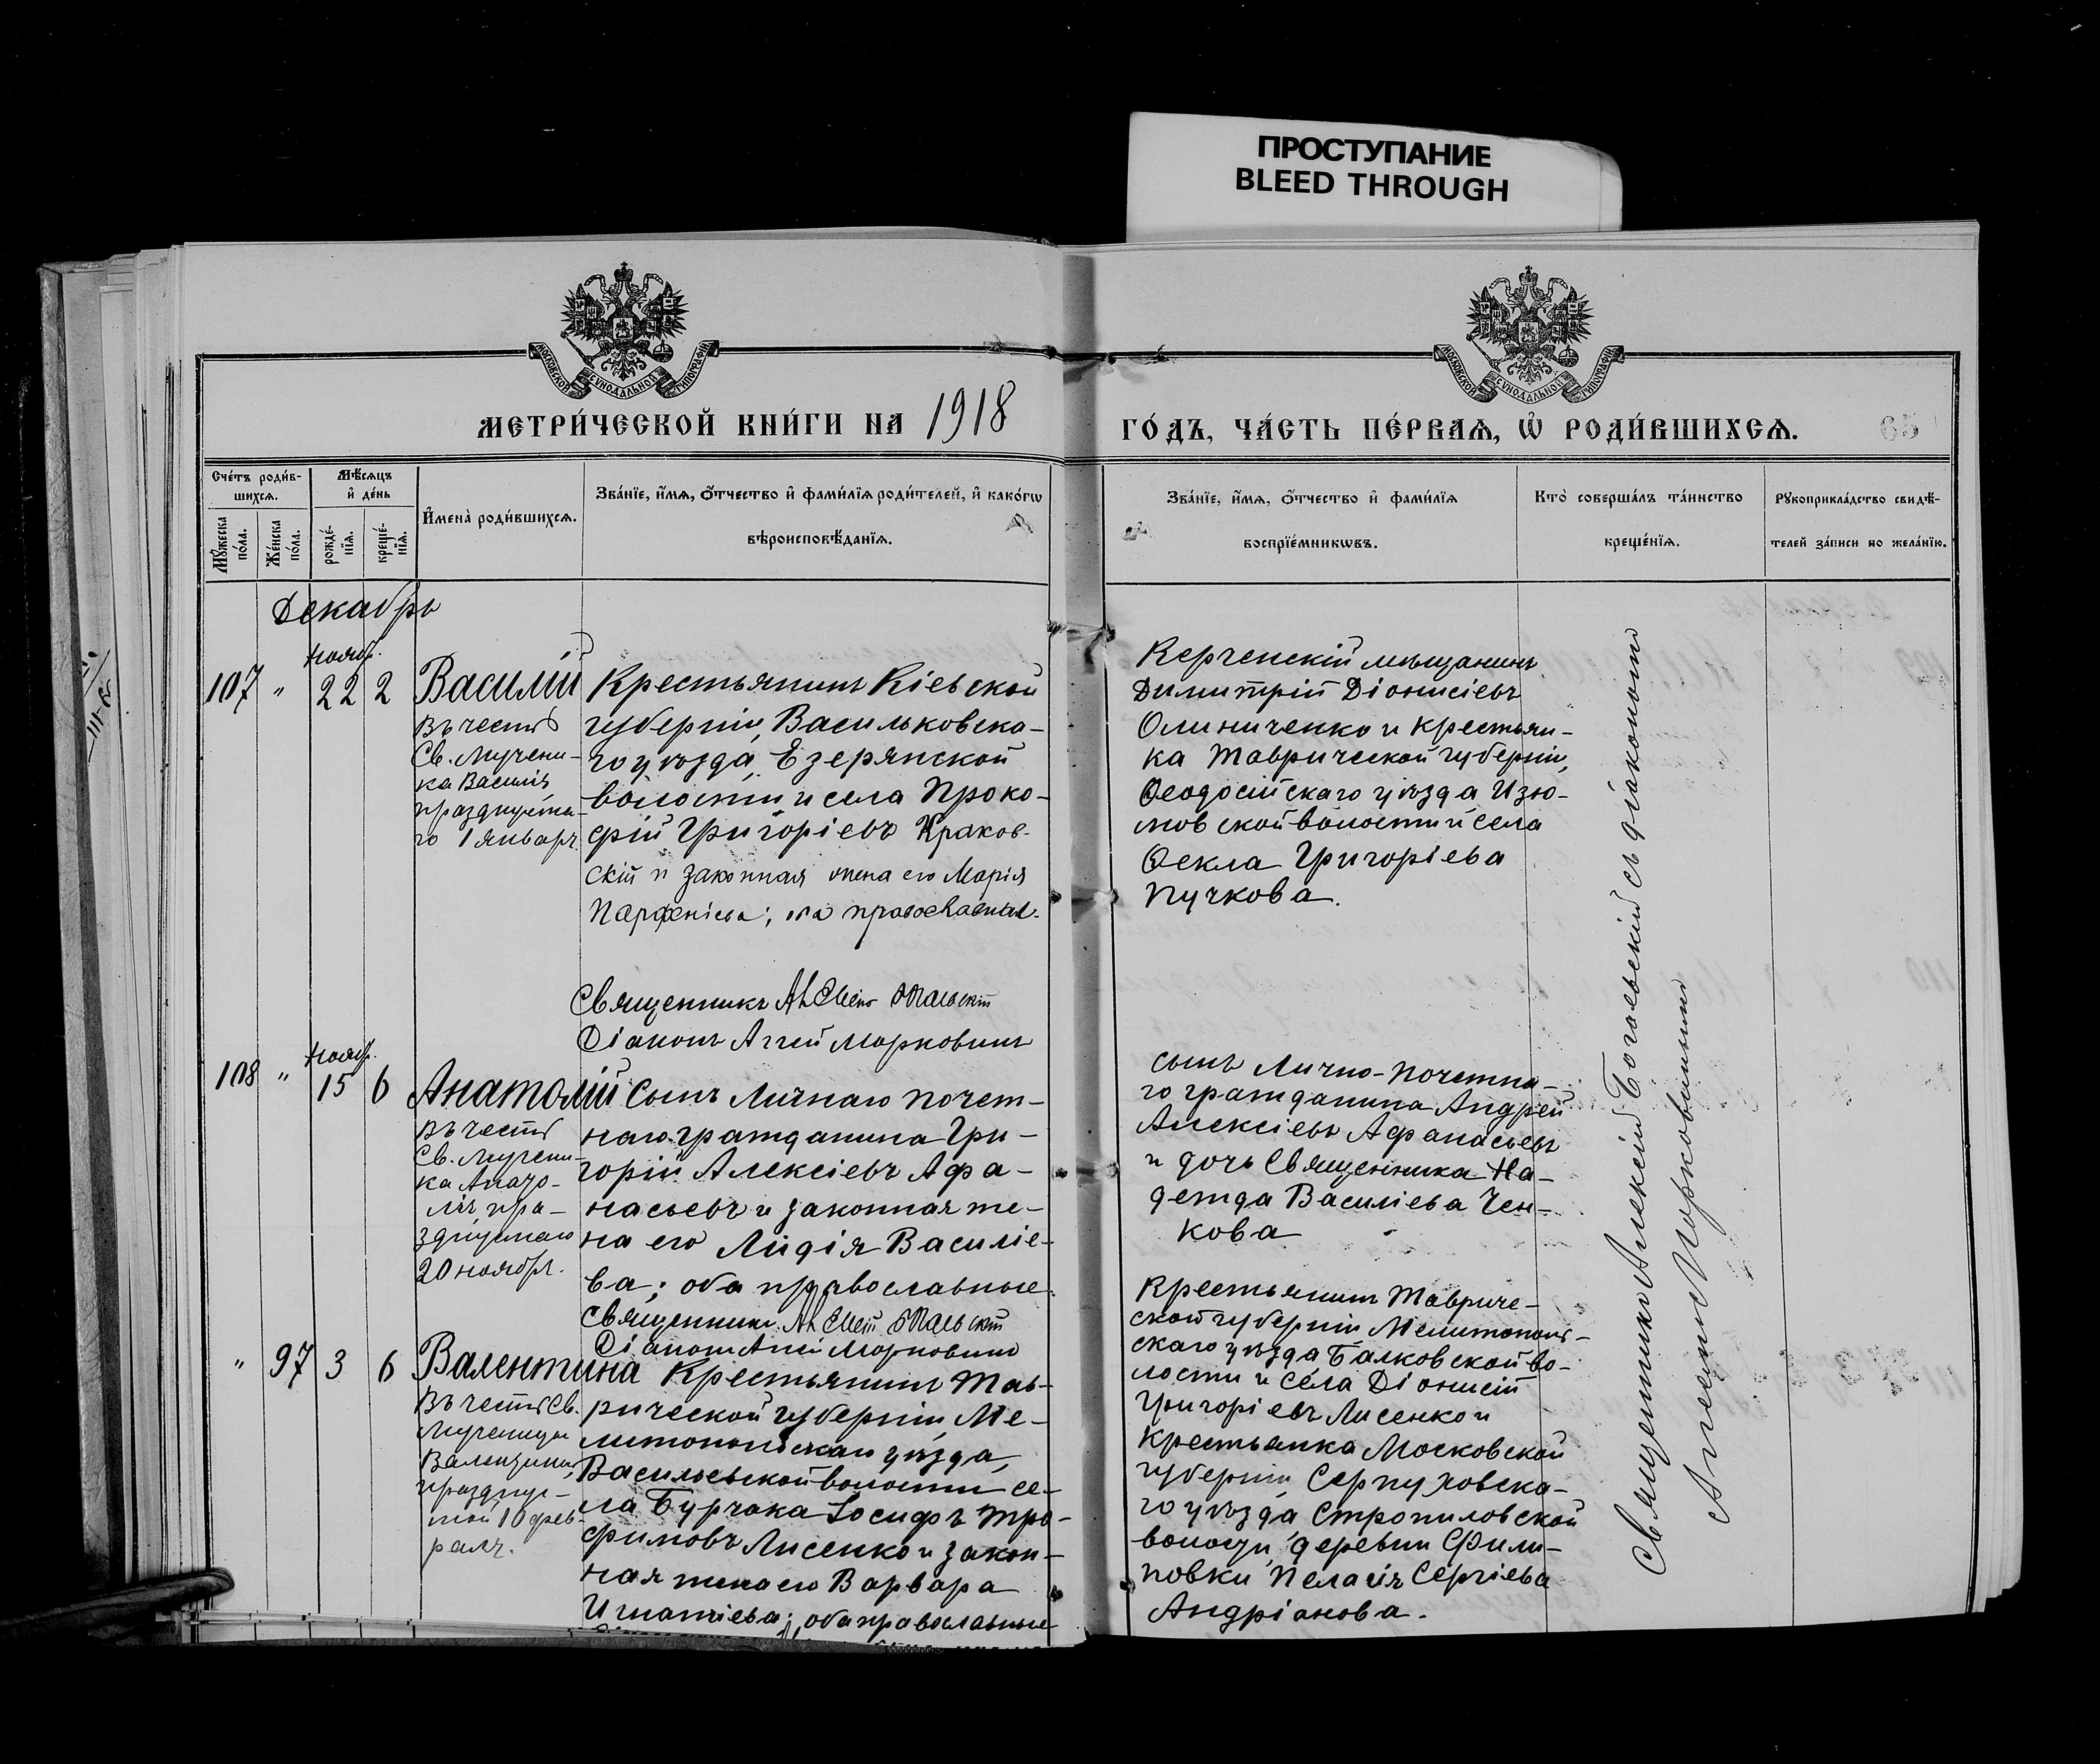 ПРОСТУПАНИЕ
BLEED THROUGH
МОСКОВСКОЙ СѴНОДАЛЬНОЙ ТИПОГРАФІИ
МОСКОВСКОЙ СѴНОДАЛЬНОЙ ТИПОГРАФІИ
МЕТРИ́ЧЕСКОЙ КНИ́ГИ НА 1918
ГО́ДЪ, ЧА́СТЬ ПЕ́РВАѦ, Ѡ҆ РОДИ́ВШИХСѦ.
65
Сче́тъ роди́в-
шихсѧ.
Мѣ́сѧцъ
и҆ де́нь
Мꙋ́жеска
по́ла.
Же́нска
по́ла.
рожде́-
нїѧ.
креще́-
нїѧ.
И҆мена̀ роди́вшихсѧ.
Зва́нїе, и҆́мѧ, ѻ҆́тчество и҆ фами́лїѧ роди́телей, и҆ како́гѡ
вѣроисповѣ́данїѧ.
Зва́нїе, и҆́мѧ, ѻ҆́тчество и҆ фами́лїѧ
воспрїе́мникѡвъ.
Кто̀ соверша́лъ та́инство
креще́нїѧ.
Рꙋкоприкла́дство свидѣ́-
телей за́писи по жела́нїю.
Декабрь
Нояб.
107 " 22 2
Василій
Въ честь
Св. Мучени-
ка Василія,
празднуема-
го 1 январ.
Крестьянинъ Кіевской
губерніи, Васильковска-
го уѣзда, Езерянской
волости и села Проко-
фій Григоріевъ Краков-
скій и законная жена его Марія
Парфеніева; оба православные.
Священникъ Алексій
Діаконъ Аггей Морковинъ
Керченскій мѣщанинъ
Димитрій Діонисіевъ
Олиниченко и крестьян-
ка Таврической губерніи,
Ѳеодосійскаго уѣзда Изю-
мовской волости и села
Ѳекла Григоріева
Пучкова.
Нояб.
108 " 15 6
Анатолій
Въ честь
Св. Мучени-
ка Анато-
лія, пра-
зднуемаго
20 ноября.
Сынъ Личнаго почет-
наго гражданина Гри-
горій Алексіевъ Афа-
насьевъ и законная же-
на его Лидія Василіе-
ва; оба православные.
Священникъ Алексій
Діаконъ Аггей Морковинъ
сынъ Лично-почетна-
го гражданина Андрей
Алексіевъ Афанасьевъ
и дочь Священника На-
дежда Василіева Чен-
кова
" 97 3 6
Валентина
Въ честь Св.
Мученицы
Валентины,
праздну-
мой 10 фев-
раля.
Крестьянинъ Тав-
рической губерніи, Ме-
литопольскаго уѣзда,
Васильевской волости се-
ла Бурчака Іосифъ Тро-
фимовъ Лисенко и закон-
ная жена его Варвара
Игнатіева; оба православные
Крестьянинъ Тавриче-
ской губерніи Мелитополь-
скаго уѣзда Балковской во-
лости и села Діонисій
Григоріевъ Лисенко и
Крестьянка Московской
губерніи, Серпуховска-
го уѣзда Стропиловской
волости, деревни Фили-
повки Пелагія Сергіева
Андріанова.
Священникъ Алексій съ діакономъ
Аггеемъ Морковинымъ